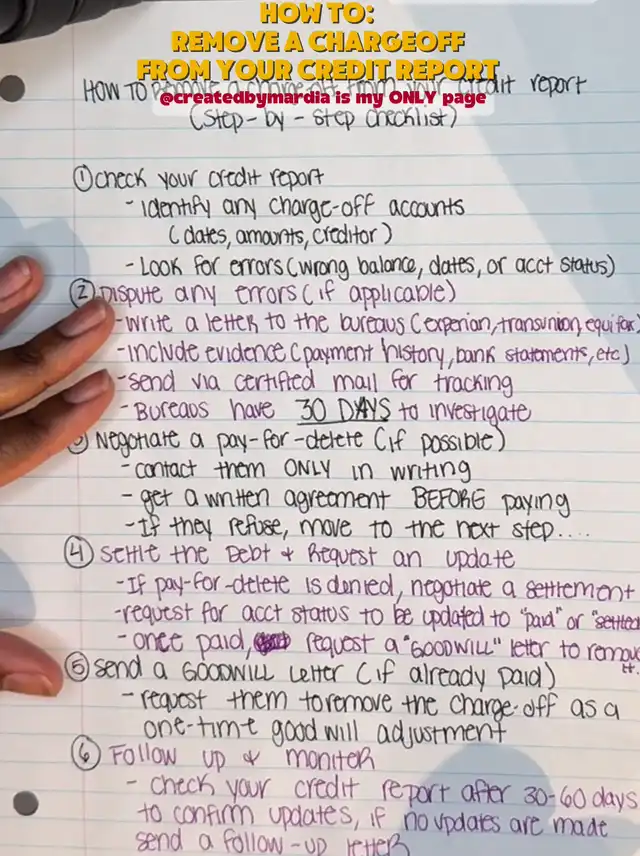 HOW TO:
REMOVE A CHARGEOFF
FROM YOUR CREDIT REPORT
HOW TO Remove a charge-off from your credit report
@createdbymardia is my ONLY page
(Step-by-step checklist)
① check your credit report
- Identify any charge-off accounts
(dates, amounts, creditor)
- Look for errors (wrong balance, dates, or acct status)
② Dispute any errors (if applicable)
- write a letter to the bureaus (experian, transunion, equifax)
- include evidence (payment history, bank statements, etc)
- send via certified mail for tracking
- Bureaus have 30 DAYS to investigate
Negotiate a pay-for-delete (if possible)
- contact them ONLY in writing
- get a written agreement BEFORE paying
- If they refuse, move to the next step....
④ Settle the Debt & Request an update
- If pay-for-delete is denied, negotiate a settlement
- request for acct status to be updated to "paid" or "settled
- once paid, request a "GOODWILL" letter to remove
it.
⑤ Send a GOODWILL Letter (if already paid)
- request them to remove the charge-off as a
one-time good will adjustment
⑥ Follow up & moniter
- check your credit report after 30-60 days
to confirm updates, if no updates are made
send a follow-up letter